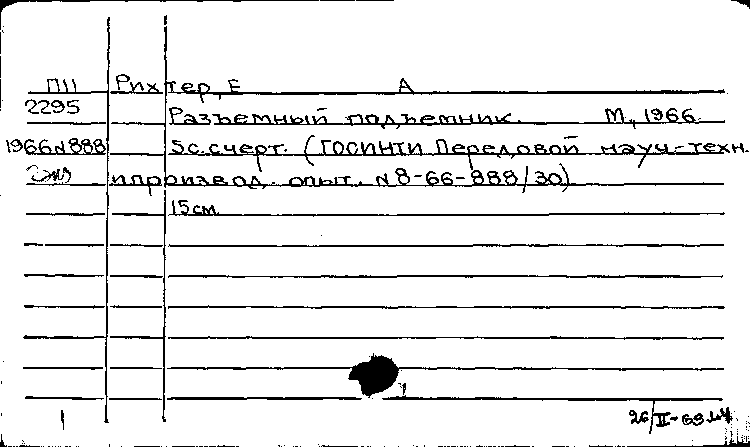 П11 Рихтер, Е А
2295 Разъемный подъемник. М, 1966.
1966 N 888 5с.счерт. (ГОСИНТИ Передовой науч-техн.
2 экз ипроизвод. опыт. N8-66-888/30)
15см
26/II-69